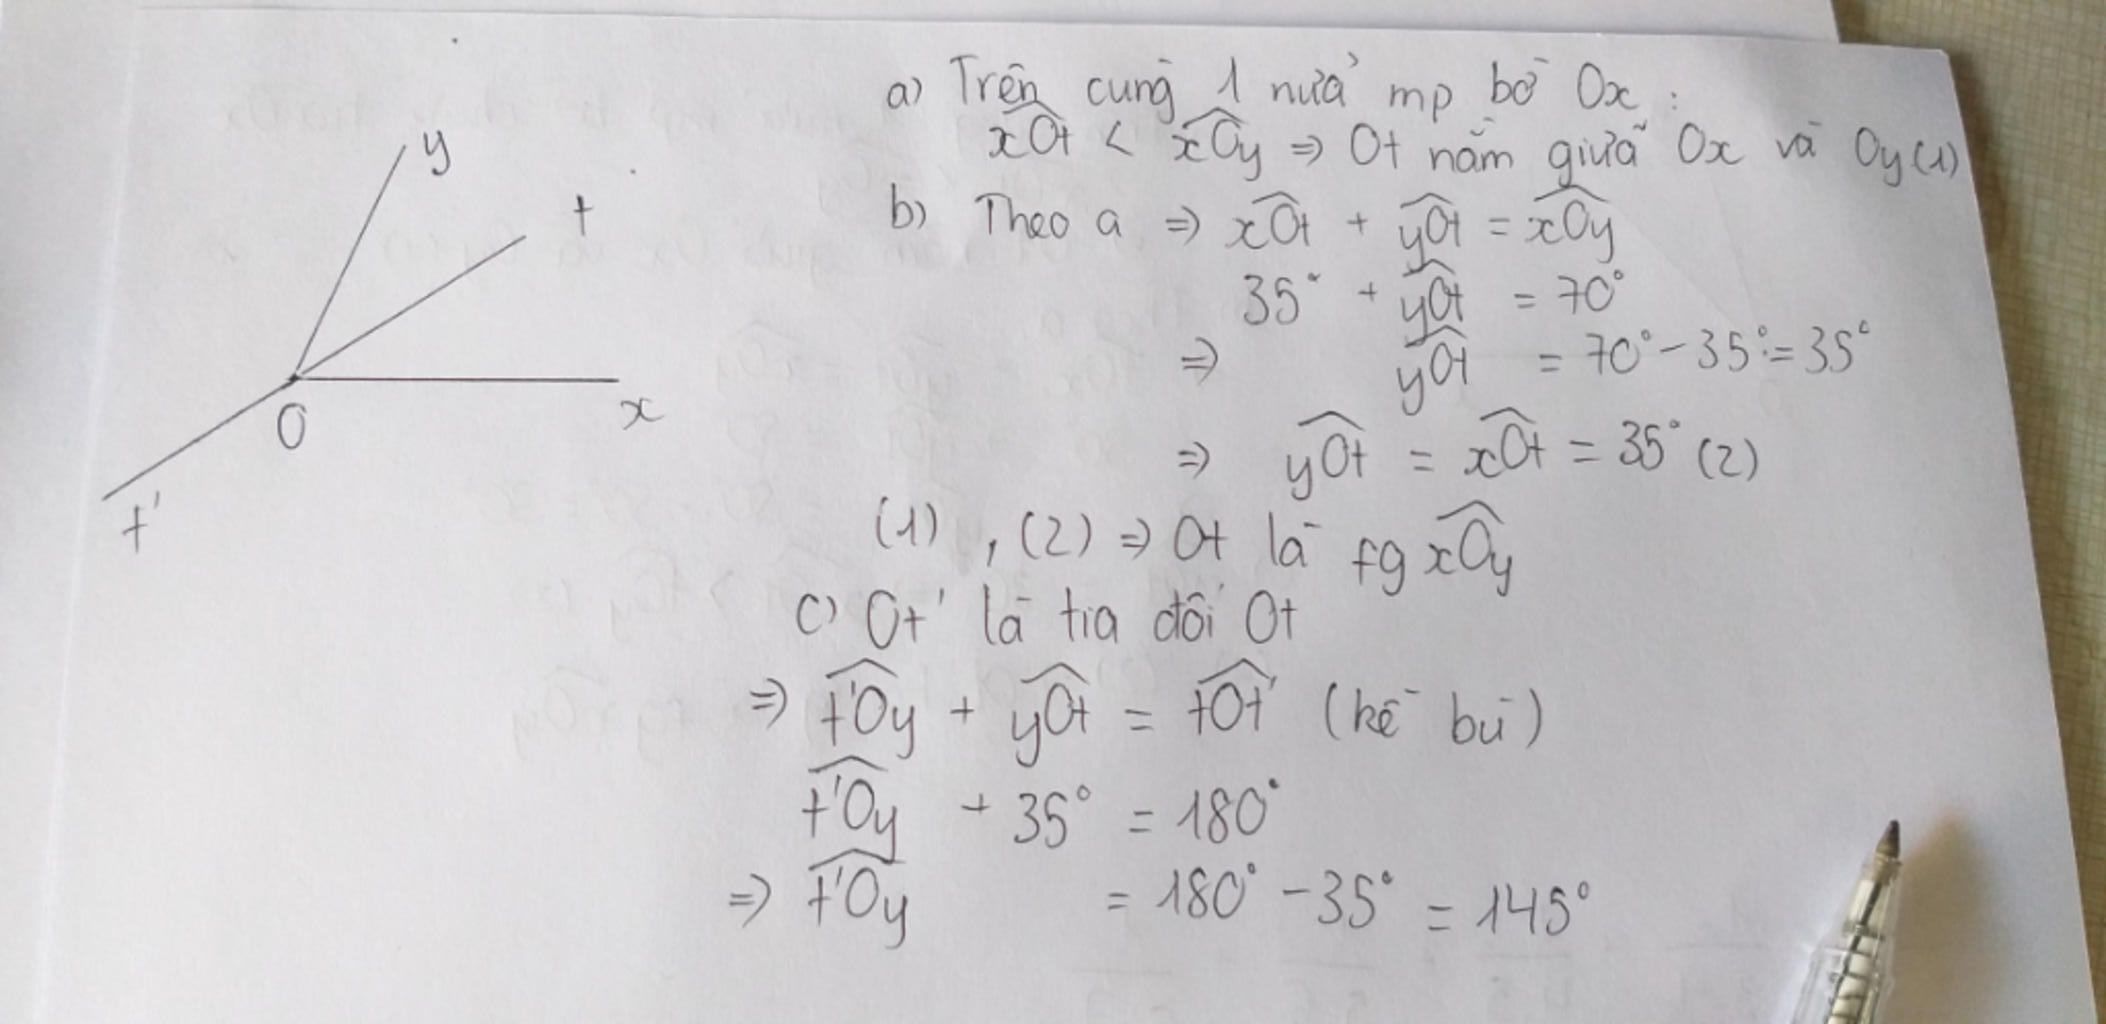 y
t
O
x
t'
a) Trên cùng 1 nửa mp bờ Ox :
xOt < xOy ⇒ Ot nằm giữa Ox và Oy (1)
b) Theo a ⇒ xOt + yOt = xOy
35° + yOt = 70°
⇒ yOt = 70° - 35° = 35°
⇒ yOt = xOt = 35° (2)
(1) , (2) ⇒ Ot là fg xOy
c) Ot' là tia đối Ot
⇒ t'Oy + yOt = tOt' (kề bù)
t'Oy + 35° = 180°
⇒ t'Oy = 180° - 35° = 145°